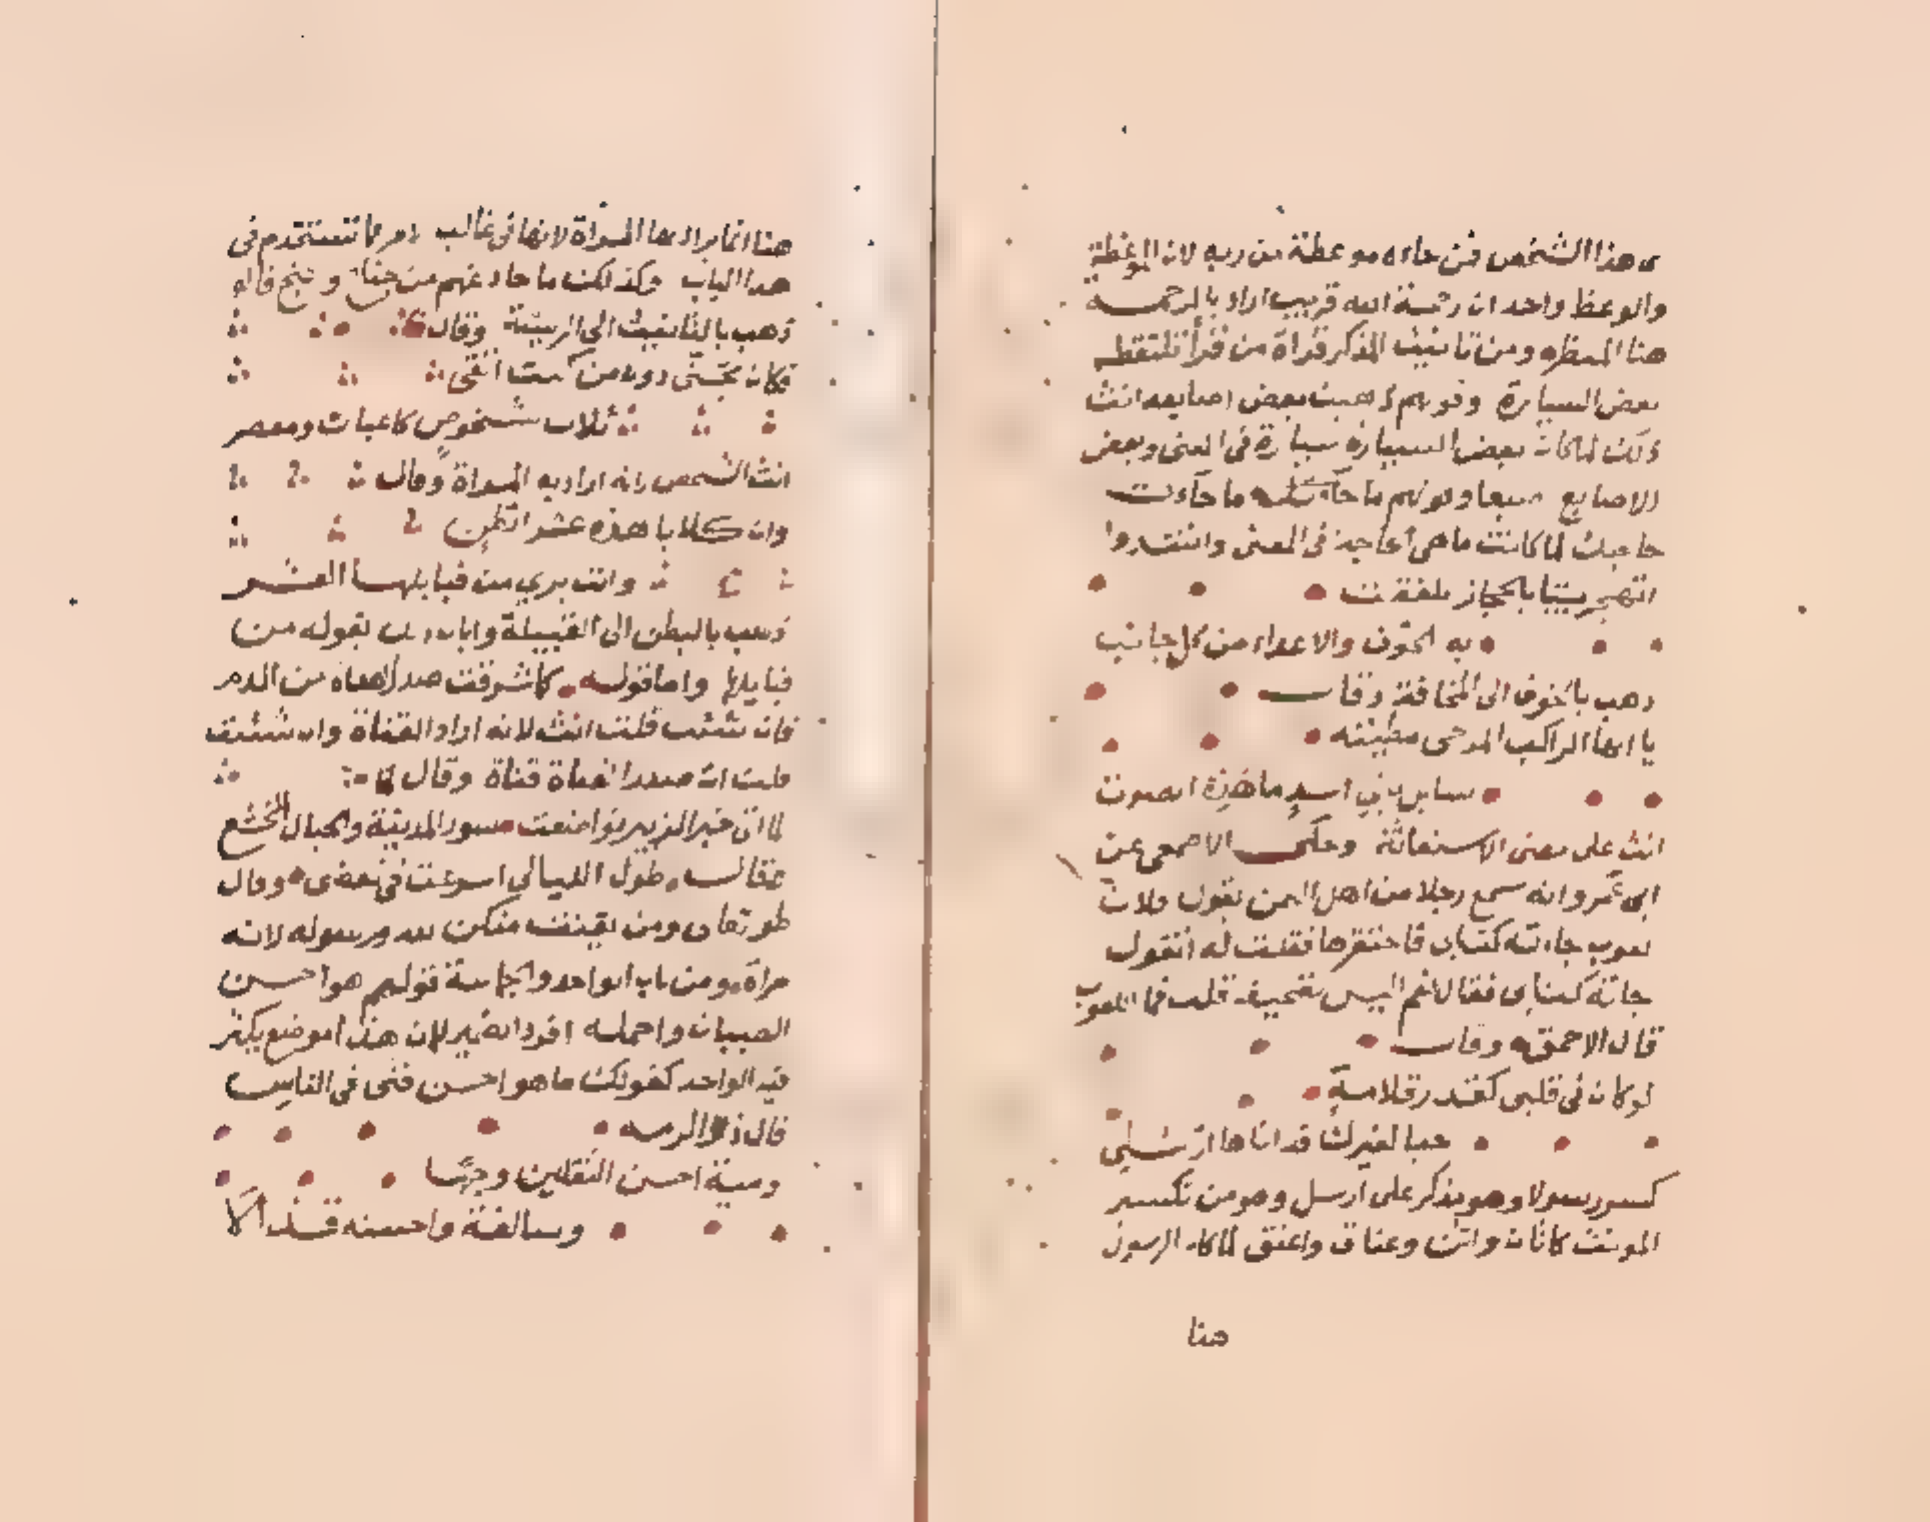 ى هذا الشخص فمن جاءه موعظة من ربه لان الموعظة
والوعظ واحد ان رحمة الله قريب اراد بالرحمـــة
هنا المطر ومن تانيث المذكر قراة من قرأ تلتقطـه
بعض السيارة وقولهم ذهبت بعض اصابعه انث
ذلك لما كان بعض السيارة سيارة في المعنى وبعض
الاصابع اصبعا وقولهم ما جآءت ما جآءت
حاجتك لما كانت ما هي الحاجة في المعنى وانشدوا
اتهجر بيتا بالحجاز تلفعت
به الخوف والاعداء من كل جانب
ذهب بالخوف الى المخافة وقال
يا ايها الراكب المزجى مطيته
سايل بني اسد ما هذه الصوت
انث على معنى الاستغاثة وحكى الاصمعي عن
ابي عمرو انه سمع رجلا من اهل اليمن يقول فلان
لغوب جاءته كتابي فاحتقرها فقلت له اتقول
جاته كتابي فقال نعم اليس بصحيفة قلت فما اللغوب
قال الاحمق وقال
لو كان في قلبي كقدر قلامة
حبا لغيرك قد اتاها ارسلي
كسر رسولا وهو مذكر على ارسل وهو من تكسير
المونث كاتان واتن وعناق واعنق لما كان الرسول
هنا
هنا انما يراد بها المراة لانها في غالب الامر مما تستخدم في
هذا الباب وكذلك ما جاء عنهم من جناح و اجنح قالو
ذهب بالتانيث الى الريشة وقال
فكان مجنى دون من كنت اتقى
ثلاث شخوص كاعبات ومعصر
انث الشخص لانه اراد به المراة وقال
وان كلابا هذه عشر ابطن
وانت برى من قبايلهـــا العشـــر
ذهب بالبطن الى القبيلة وابان ذلك بقوله من
قبايلها واما قوله كما شرقت صدر القناة من الدم
فان شئت قلت انث لانه اراد القناة وان شئت
قلت ان صدر القناة قناة وقال
لما اتى خبر الزبير تواضعت سور المدينة والجبال الخشع
وقال طول الليالي اسرعت في نقضى وقال
هو تعالى ومن يقنت منكن لله ورسوله لانه
مراة ومن باب الواحد والجماعة قولهم هو احسن
الصبيان واجمله افرد الضمير لان هذا موضع يكثر
فيه الواحد كقولك ما هو احسن فتى في الناس
قال ذو الرمه
ومية احسن الثقلين وجهـا
وسالفة واحسنه قذالا